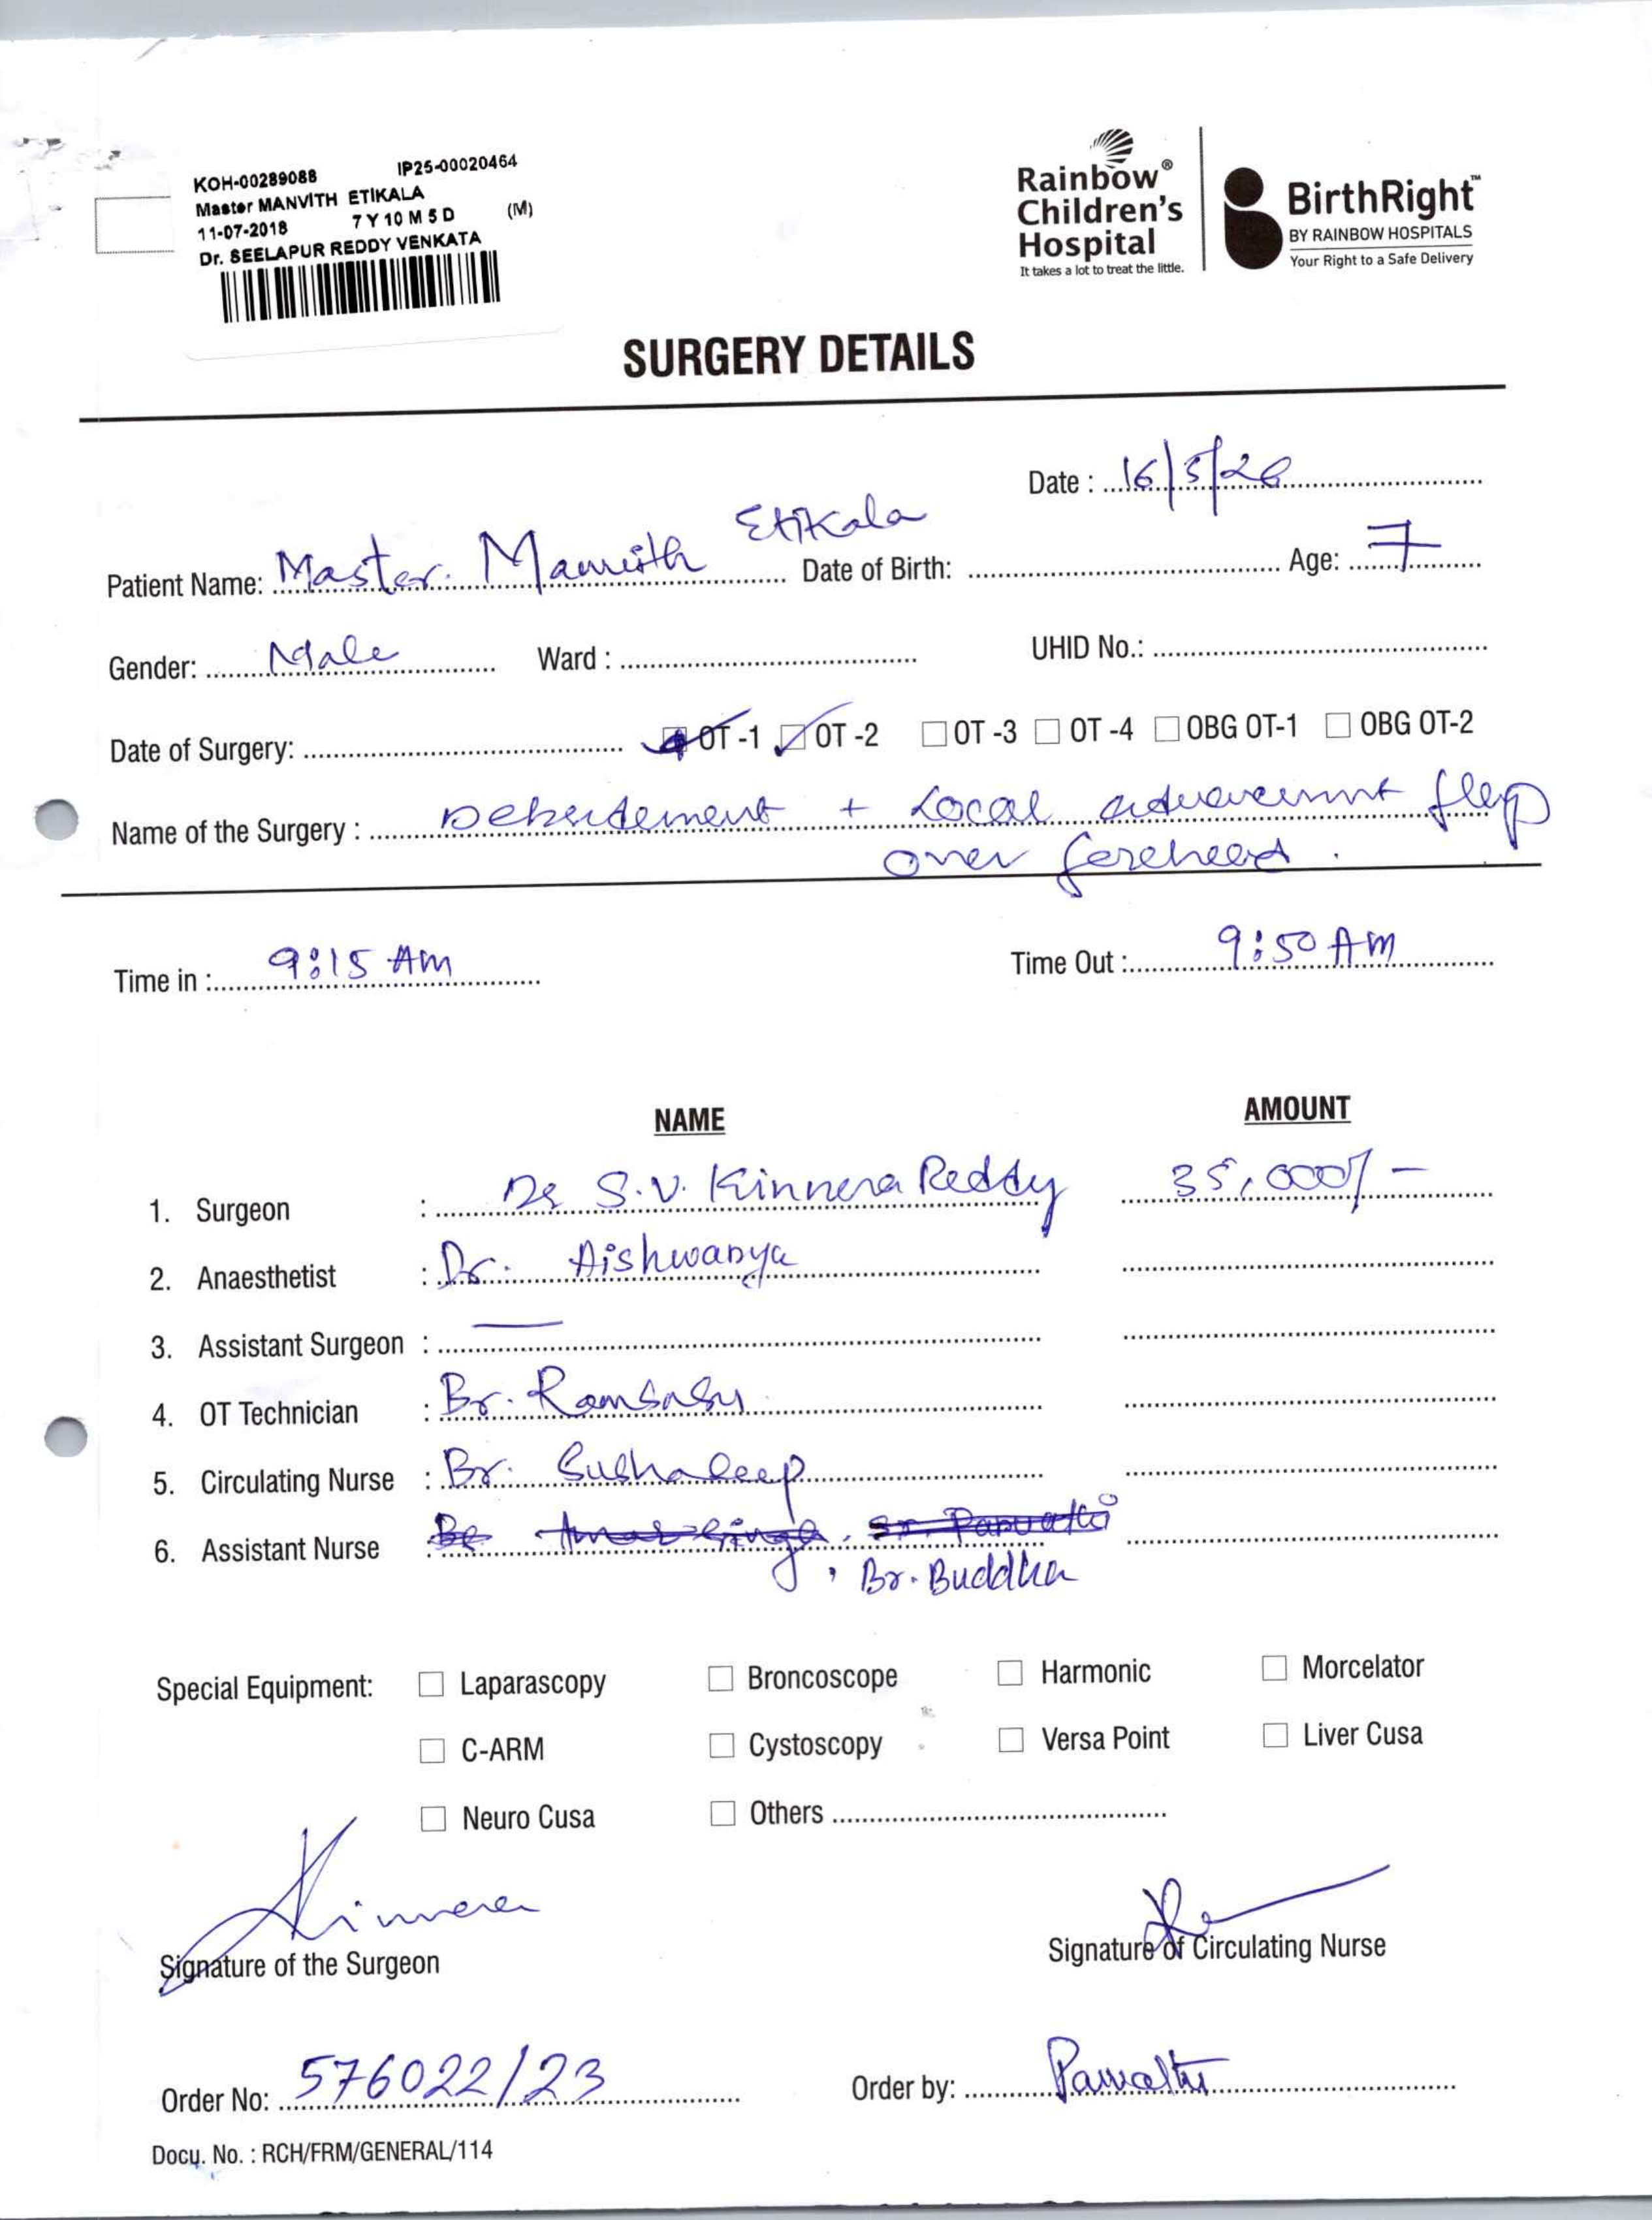 KOH-00289088 IP25-00020464
Master MANVITH ETIKALA
11-07-2018 7 Y 10 M 5 D (M)
Dr. SEELAPUR REDDY VENKATA
Rainbow®
Children's
Hospital
It takes a lot to treat the little.
BirthRight™
BY RAINBOW HOSPITALS
Your Right to a Safe Delivery
SURGERY DETAILS
Date : 16/5/26
Patient Name: Master. Manvith Etikala Date of Birth: Age: 7
Gender: Male Ward : UHID No.:
Date of Surgery: OT -1 OT -2 OT -3 OT -4 OBG OT-1 OBG OT-2
Name of the Surgery : Debridement + Local advancement flap
over forehead.
Time in : 9:15 Am Time Out : 9:50 AM
NAME AMOUNT
1. Surgeon : Dr S.V. Kinnera Reddy 35,000/-
2. Anaesthetist : Dr. Aishwarya
3. Assistant Surgeon : —
4. OT Technician : Br. Rambabu
5. Circulating Nurse : Br.
6. Assistant Nurse : Br Singh, Sr. Parvathi
, Br. Buddha
Special Equipment: Laparascopy Broncoscope Harmonic Morcelator
C-ARM Cystoscopy Versa Point Liver Cusa
Neuro Cusa Others
Kinnera
Signature of the Surgeon Signature of Circulating Nurse
Order No: 576022/23 Order by: Parvathi
Docu. No. : RCH/FRM/GENERAL/114